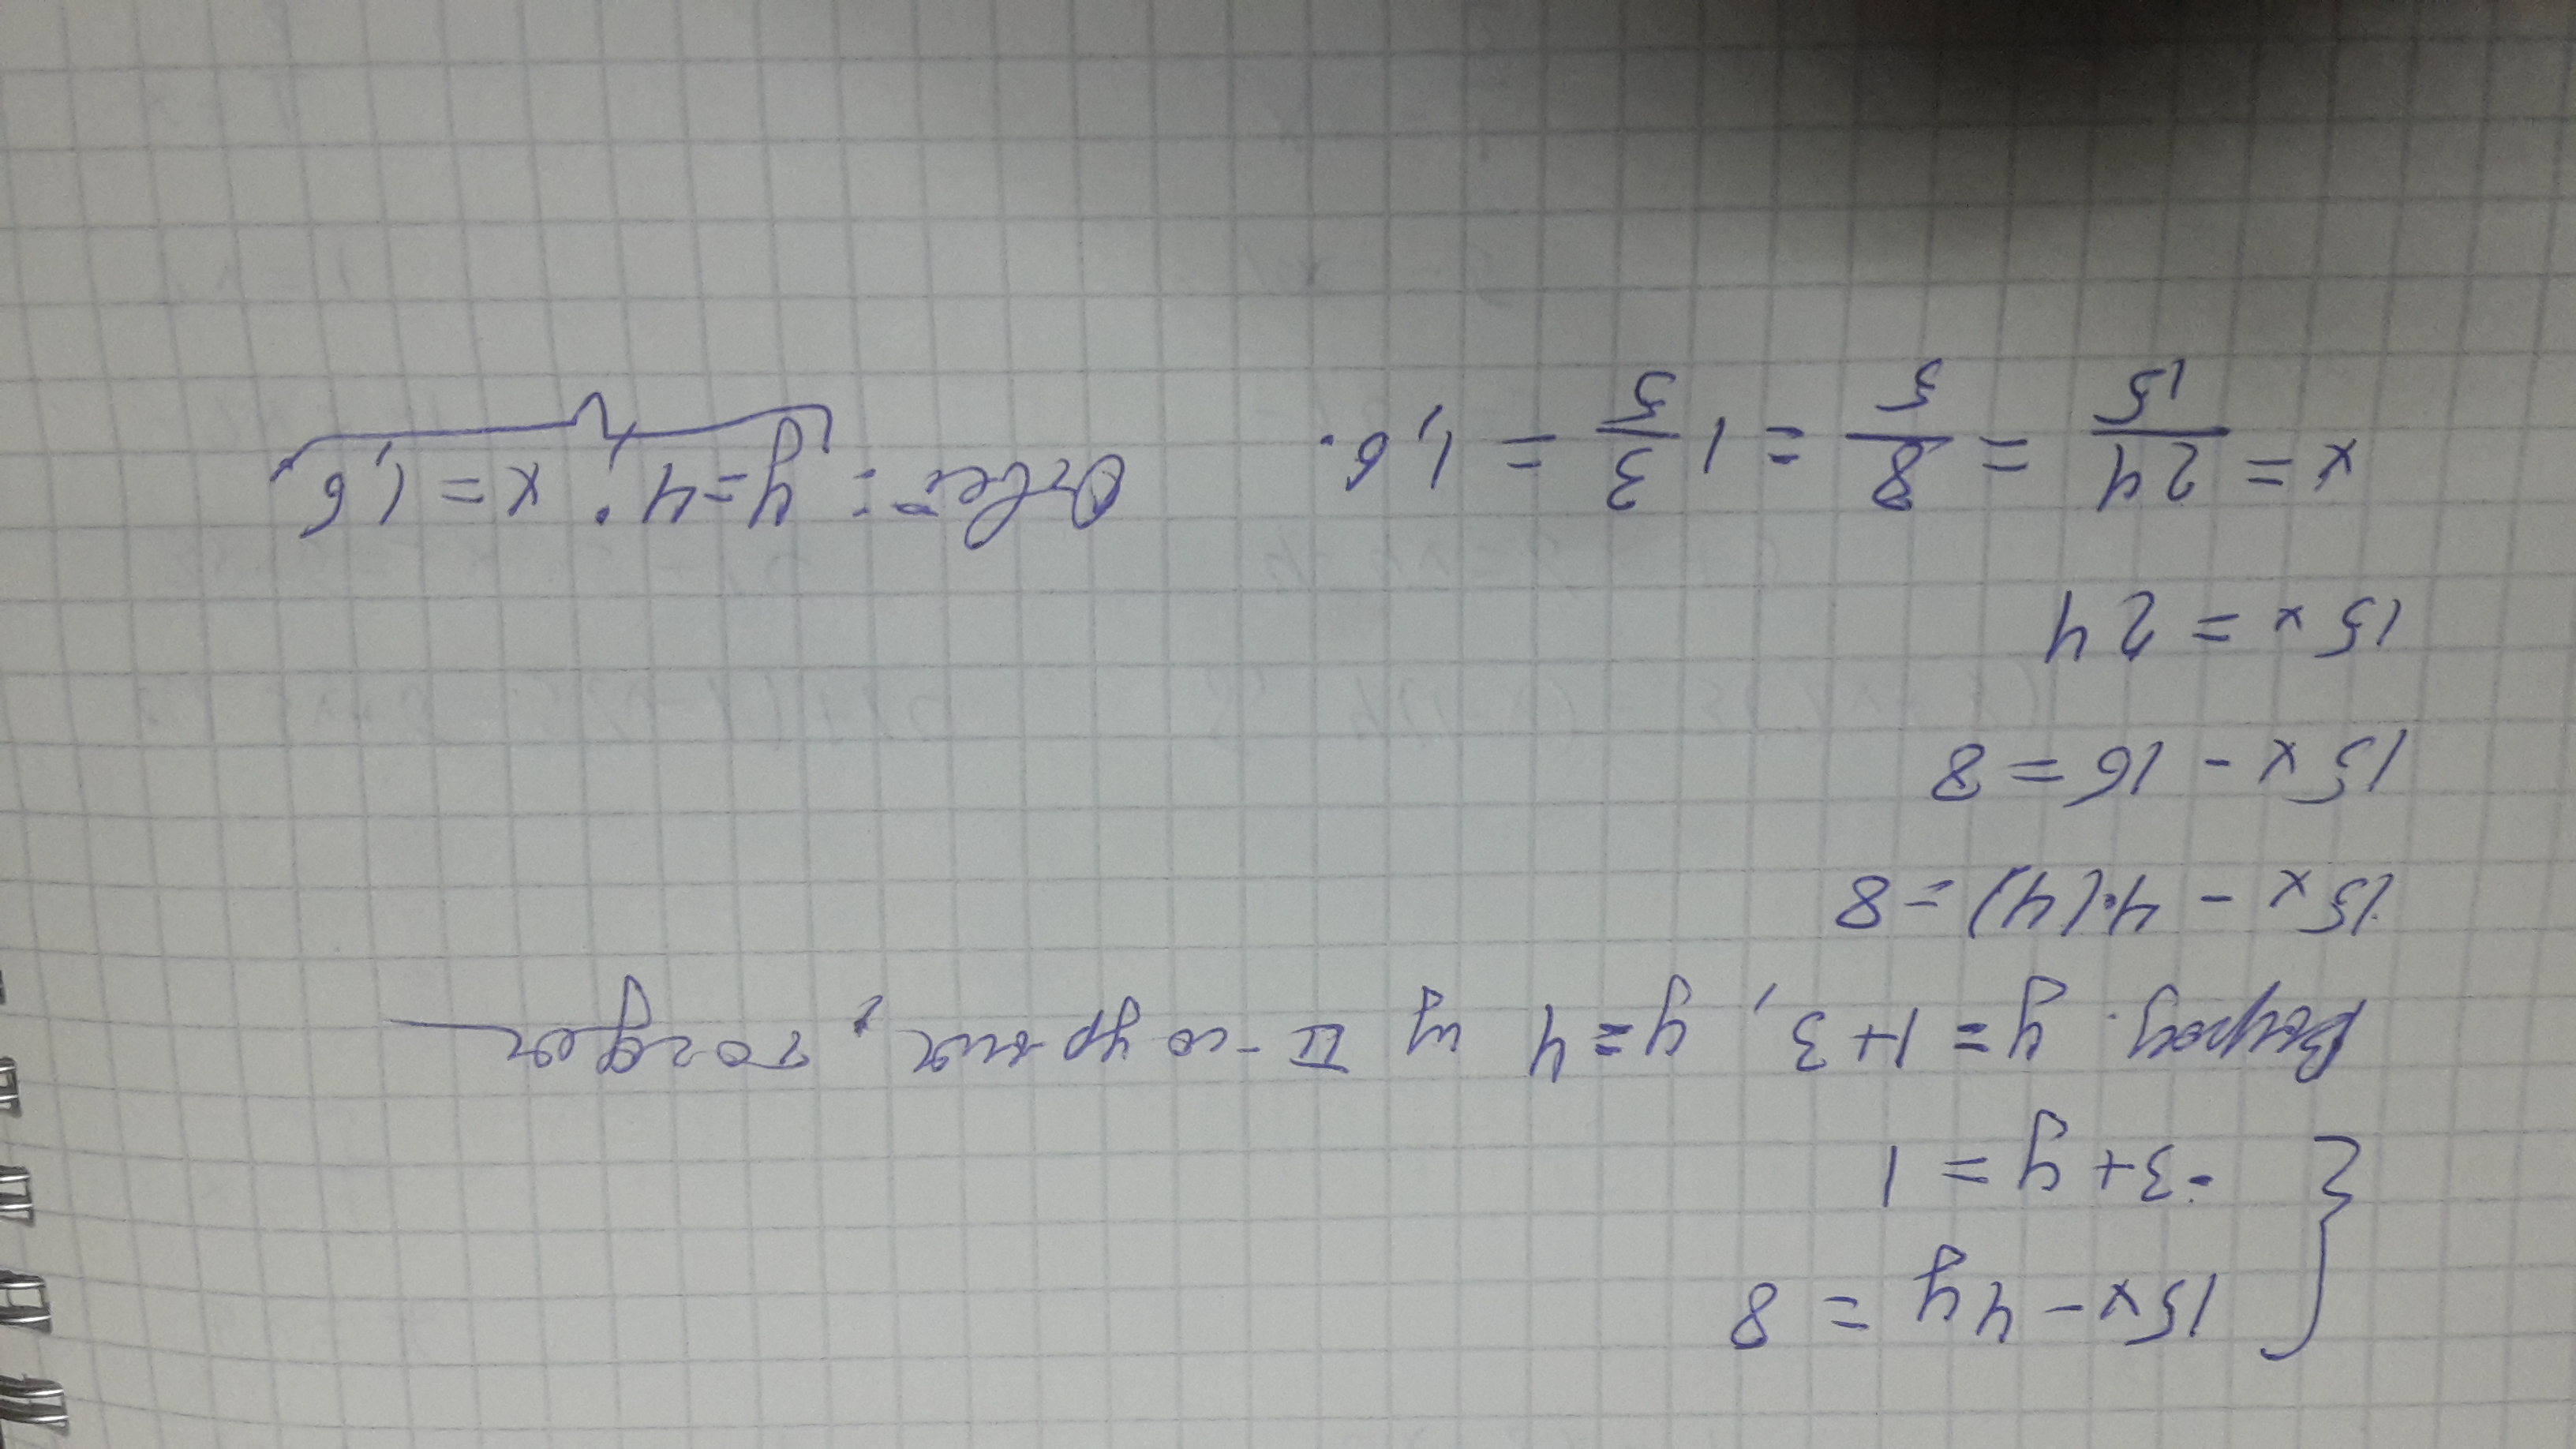 15x - 4y = 8
-3 + y = 1
Выраз. y = 1 + 3, y = 4 из II-го ур-ния, тогда
15x - 4·(4) = 8
15x - 16 = 8
15x = 24
x = 24/15 = 8/5 = 1 3/5 = 1,6. Ответ: y = 4; x = 1,6